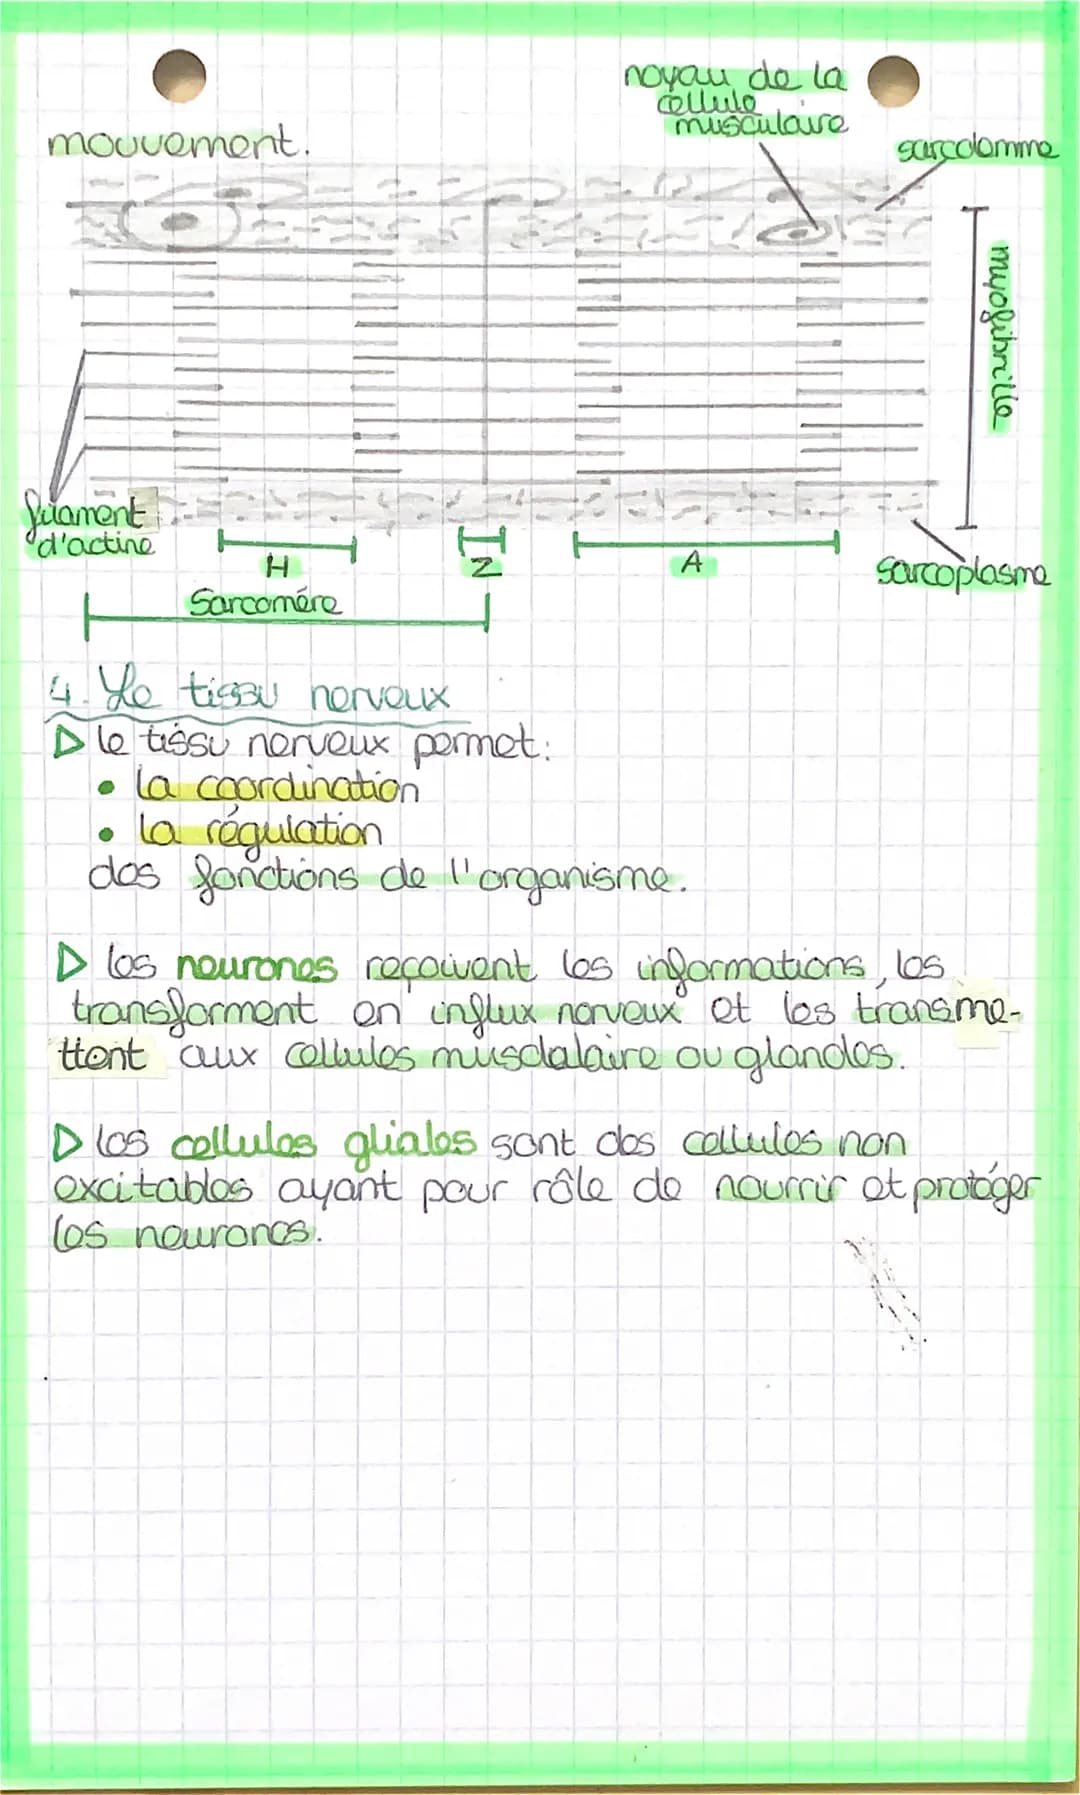 noyau de la
cellule
musculaire
mouvement.
sarcolemme
myofibrille
filament
d'actine
H
Z
A
Sarcoplasme
Sarcomère
4. Le tissu nerveux
▷ le tissu nerveux permet:
• la coordination
• la régulation
des fonctions de l'organisme.
▷ les neurones reçoivent les informations, les
transforment en influx nerveux et les transme-
ttent aux cellules musdalaire ou glandes.
▷ les cellules gliales sont des cellules non
excitables ayant pour rôle de nourrir et protéger
les neurones.